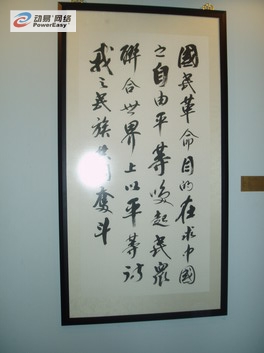 动易®网络
PowerEasy
國民革命目的在求中國
之自由平等喚起民眾
聯合世界上以平等待
我之民族共同奮斗